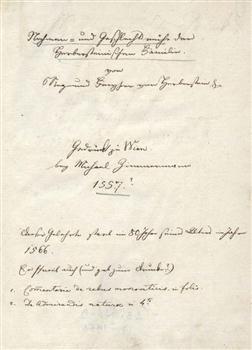 Nahmen- und Geschlechts reihe der
Herbersteinischen Familie.
von
Sigmund Freyherr von Herberstein &
Gedruckt zu Wien
bey Michael Zimmermann
1557.?
Dieser Gelehrte starb im 80 Jahre seines Alters im Jahr
1566.
Er schrieb auch (und gab zum Drucke?)
1. Comentarie de rebus moscoviticis in folio.
2. De Admirandis naturae in 4º